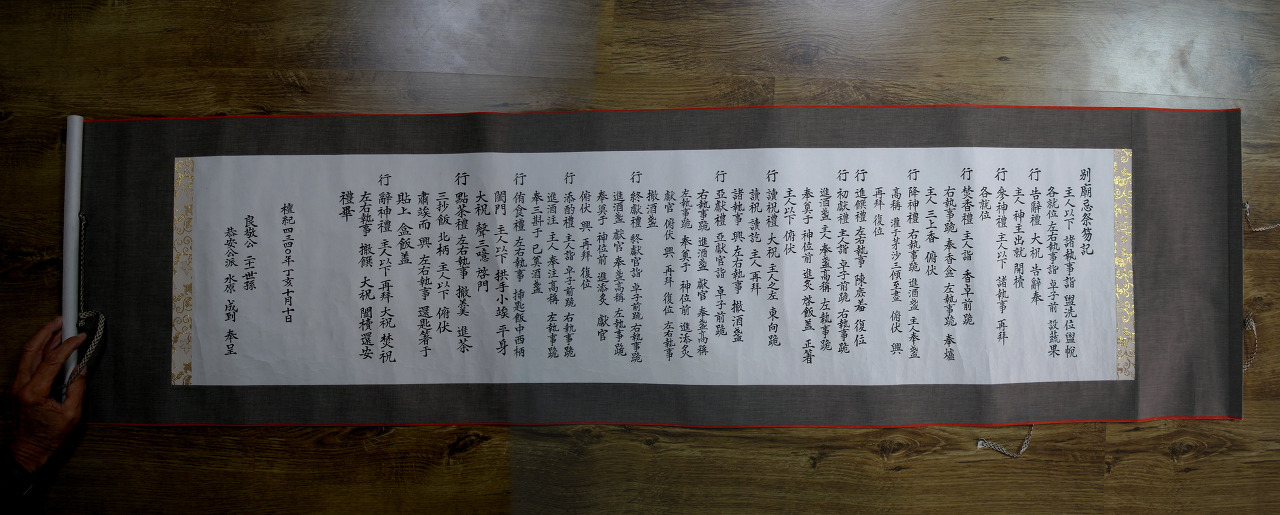 別廟忌祭笏記
主人以下 諸執事詣 盥洗位盥帨
各就位 左右執事詣 卓子前 設蔬果
行 告辭禮 大祝 告辭奉
主人 神主出就 開櫝
行 參神禮 主人以下 諸執事 再拜
各就位
行 焚香禮 主人詣 香卓前跪
右執事跪 奉香盒 左執事跪 奉爐
主人 三上香 俯伏
行 降神禮 右執事跪 進酒盞 主人奉盞
高稱 灌于茅沙三傾至盡 俯伏 興
再拜 復位
行 進饌禮 左右執事 陳嘉羞 復位
行 初獻禮 主人詣 卓子前跪 右執事跪
進酒盞 主人 奉盞高稱 左執事跪
奉奠于 神位前 進炙 飯蓋 正箸
主人以下 俯伏
行 讀祝禮 大祝 主人之左 東向跪
讀祝 讀訖 主人 再拜
諸執事 興 左右執事 撤酒盞
行 亞獻禮 亞獻官詣 卓子前跪
右執事跪 進酒盞 獻官 奉盞高稱
左執事跪 奉奠于 神位前 進添炙
獻官 俯伏 興 再拜 復位 左右執事
撤酒盞
行 終獻禮 終獻官詣 卓子前跪 右執事跪
進酒盞 獻官 奉盞高稱 左執事跪
奉奠于 神位前 進添炙 獻官
俯伏 興 再拜 復位
行 添酌禮 主人詣 卓子前跪 右執事跪
進酒注 主人 奉注高稱 左執事跪
奉三斟于 已奠酒盞
行 侑食禮 左右執事 揷匙飯中西柄
闔門 主人以下 拱手小竢 平身
大祝 聲三噫 啓門
行 點茶禮 左右執事 撤羹 進茶
三抄飯 北柄 主人以下 俯伏
肅竢而 興 左右執事 還匙箸于
貼上 盒飯蓋
行 辭神禮 主人以下 再拜 大祝 焚祝
左右執事 撤饌 大祝 闔櫝還安
禮畢
檀紀四三四○年 丁亥 十月十日
良敬公 二十一世孫
恭安公派 水原 成 奉呈